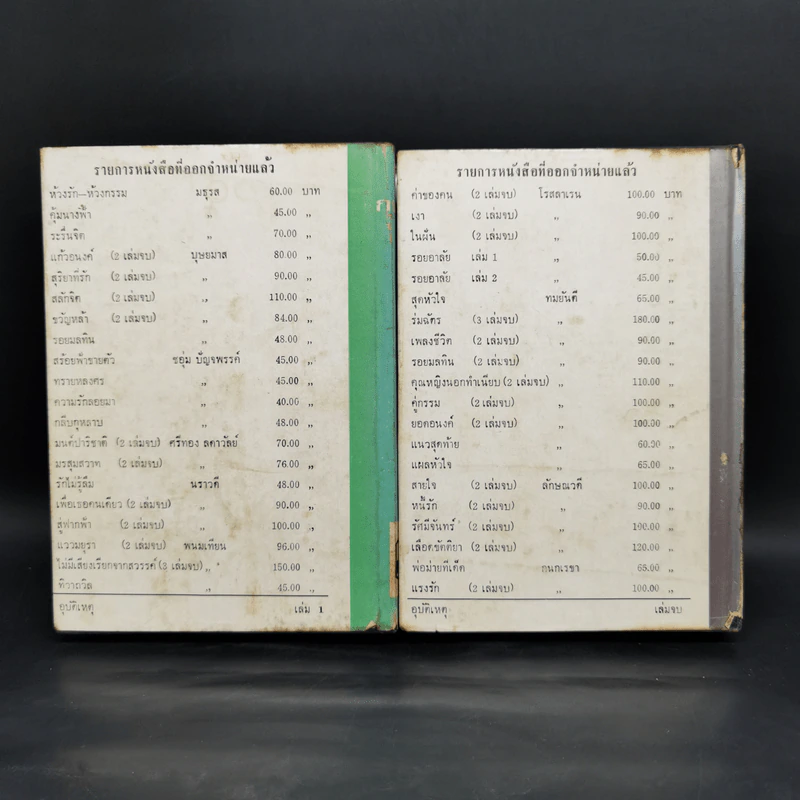 รายการหนังสือที่ออกจำหน่ายแล้ว
ห้วงรัก—ห้วงกรรม มธุรส 60.00 บาท
คุ้มนางฟ้า „ 45.00 „
ระรื่นจิต „ 70.00 „
แก้วอนงค์ (2 เล่มจบ) บุษยมาส 80.00 „
สุริยาที่รัก (2 เล่มจบ) „ 90.00 „
สลักจิต (2 เล่มจบ) „ 110.00 „
ขวัญหล้า (2 เล่มจบ) „ 84.00 „
รอยมลทิน „ 48.00 „
สร้อยฟ้าขายตัว ชอุ่ม ปัญจพรรค์ 45.00 „
ทรายหลงศร „ 45.00 „
ความรักลอยมา „ 40.00 „
กลีบกุหลาบ „ 48.00 „
มนต์ปาริชาติ (2 เล่มจบ) ศรีทอง ลดาวัลย์ 70.00 „
มรสุมสวาท (2 เล่มจบ) „ 76.00 „
รักไม่รู้ลืม นราวดี 48.00 „
เพื่อเธอคนเดียว (2 เล่มจบ) „ 90.00 „
สู่ฟากฟ้า (2 เล่มจบ) „ 100.00 „
แววมยุรา (2 เล่มจบ) พนมเทียน 96.00 „
ไม่มีเสียงเรียกจากสวรรค์ (3 เล่มจบ) „ 150.00 „
ทิวาถวิล „ 45.00 „
อุบัติเหตุ เล่ม 1
รายการหนังสือที่ออกจำหน่ายแล้ว
ค่าของคน (2 เล่มจบ) โรสลาเรน 100.00 บาท
เงา (2 เล่มจบ) „ 90.00 „
ในฝัน (2 เล่มจบ) „ 100.00 „
รอยอาลัย เล่ม 1 „ 50.00 „
รอยอาลัย เล่ม 2 „ 45.00 „
สุดหัวใจ ทมยันตี 65.00 „
ร่มฉัตร (3 เล่มจบ) „ 180.00 „
เพลงชีวิต (2 เล่มจบ) „ 90.00 „
รอยมลทิน (2 เล่มจบ) „ 90.00 „
คุณหญิงนอกทำเนียบ (2 เล่มจบ) „ 110.00 „
คู่กรรม (2 เล่มจบ) „ 100.00 „
ยอดอนงค์ (2 เล่มจบ) „ 100.00 „
แนวสุดท้าย „ 60.00 „
แผลหัวใจ „ 65.00 „
สายใจ (2 เล่มจบ) ลักษณวดี 100.00 „
หนี้รัก (2 เล่มจบ) „ 90.00 „
รัศมีจันทร์ (2 เล่มจบ) „ 100.00 „
เลือดขัตติยา (2 เล่มจบ) „ 120.00 „
พ่อม่ายทีเด็ด กนกเรขา 65.00 „
แรงรัก (2 เล่มจบ) „ 100.00 „
อุบัติเหตุ เล่มจบ